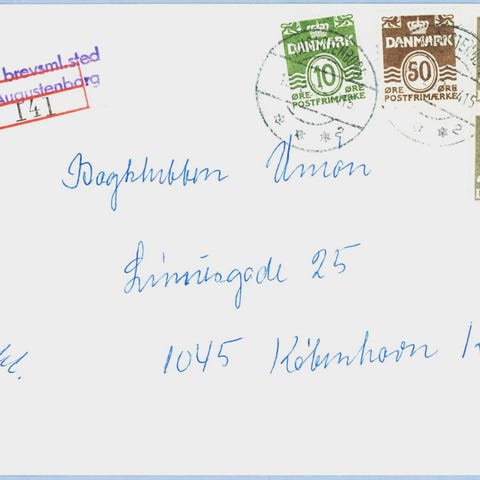 brevsml.sted
Augustenborg
141
DANMARK
10
ØRE ØRE
POSTFRIMÆRKE
DANMARK
50
ØRE ØRE
POSTFRIMÆRKE
Bogklubben Union
Linnesgade 25
1045 København K